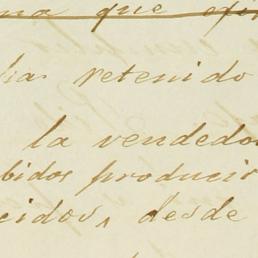 na que
ha retenido
la vendedo
bidos producio
cidos, desde